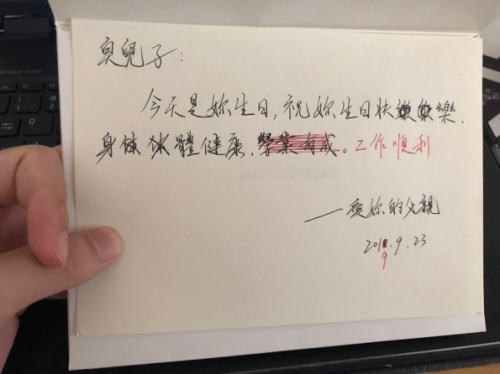 臭兒子:
今天是妳生日,祝妳生日快樂,
身體健康,學業有成。工作順利
—愛妳的父親
2019.9.23